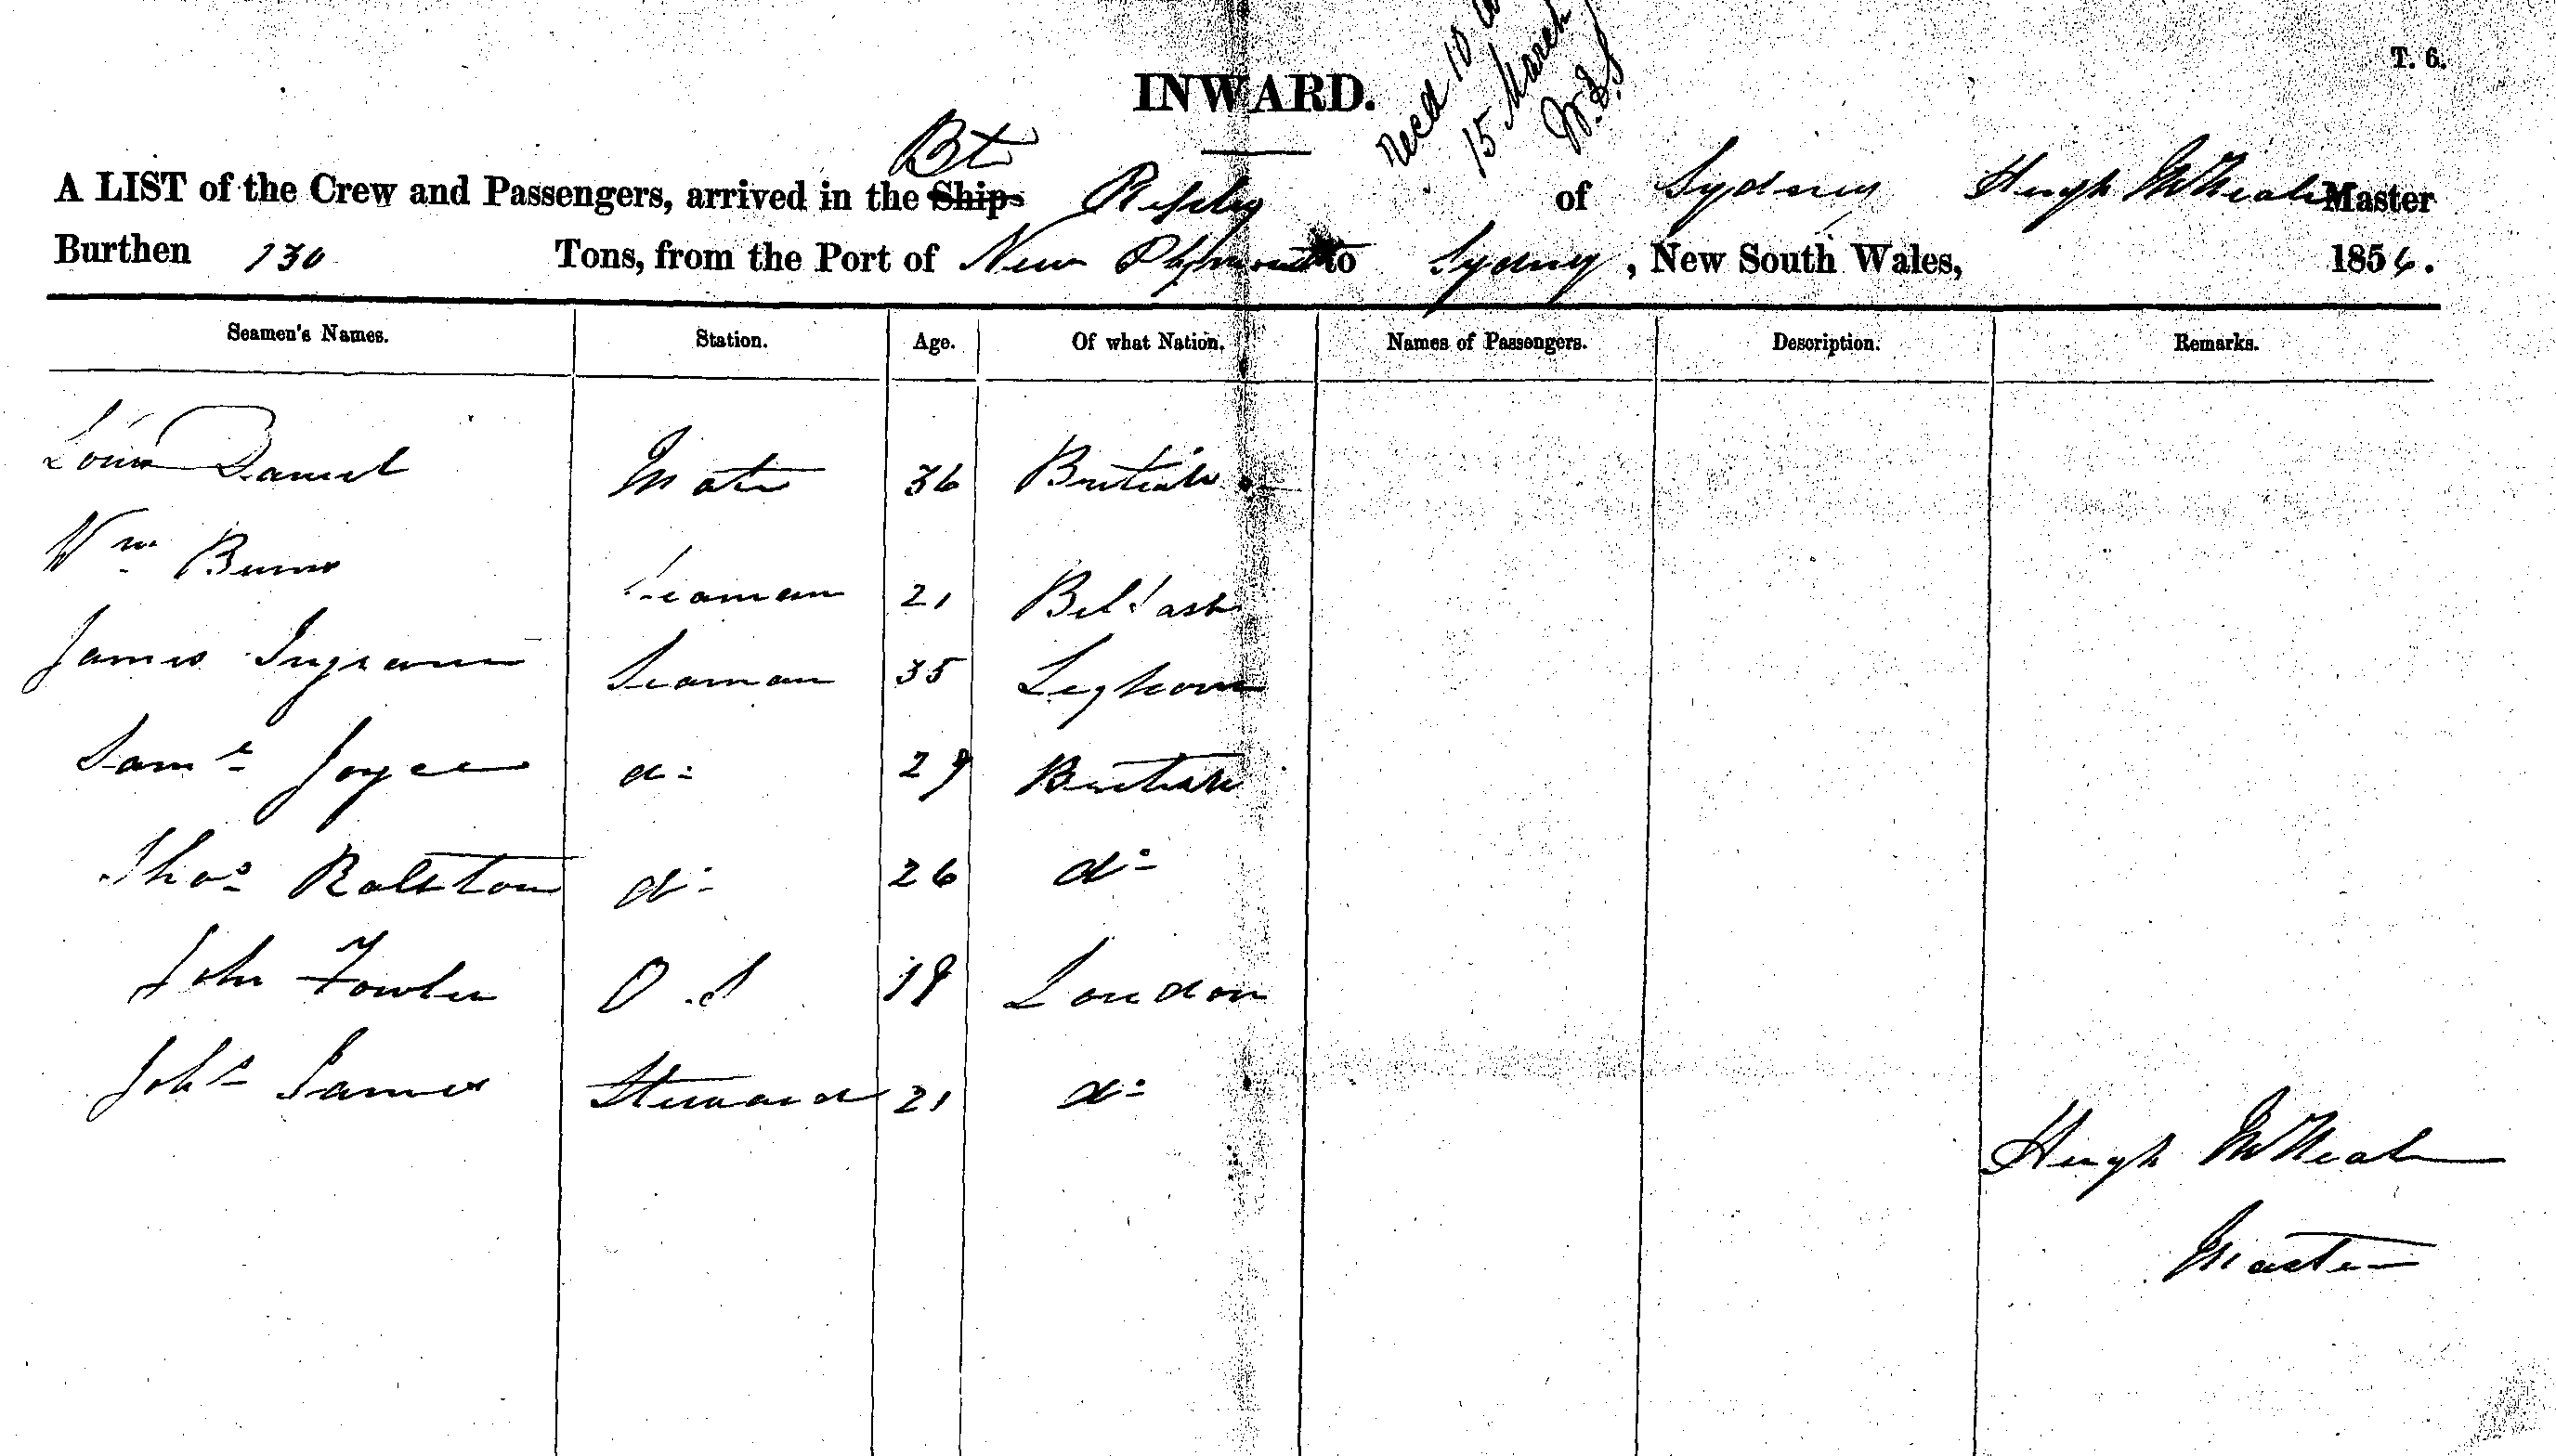 T. 6.
INWARD.
Recd 10
15 March
Bt
A LIST of the Crew and Passengers, arrived in the Ship of Sydney Hugh McNeale Master
Burthen 130 Tons, from the Port of New Plymouth to Sydney, New South Wales, 1856.
Seamen's Names. Station. Age. Of what Nation. Names of Passengers. Description. Remarks.
Daniel Mate 36 British
Wm Burns Seaman 21 Belfast
James Ingram Seaman 35 Leghorn
Saml Joyce do 29 British
Thos Ralston do 26 do
John Fowler O.S 19 London
James Steward 21 do
Hugh McNeale
Master